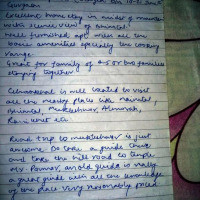 Gurgaon
Excellent property in midst of mountains
with scenic view of Bhimtal.
Well furnished apt. with all the
basic amenities specially the cooking
range
Great for family of 4 or 5 or two families
staying together
Centrally is well located to visit
all the nearby places like nainital,
Bhimtal, Mukteshwar, Almorah,
Ranikhet etc
Road trip to mukteshwar is just
awesome. Do take a guide there
and take the hill road to temple.
Mr. an old guide is really
a great guide with all the knowledge
of the place very reasonably priced